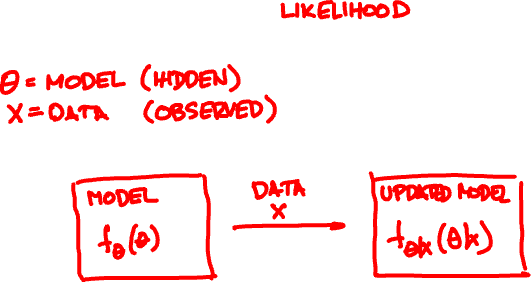 LIKELIHOOD
θ = MODEL (HIDDEN)
X = DATA (OBSERVED)
MODEL
f_θ(θ)
DATA
X
UPDATED MODEL
f_θ|x(θ|x)